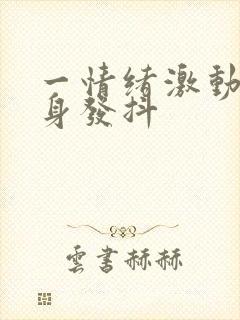 一情绪激動
身發抖
雲書赫赫